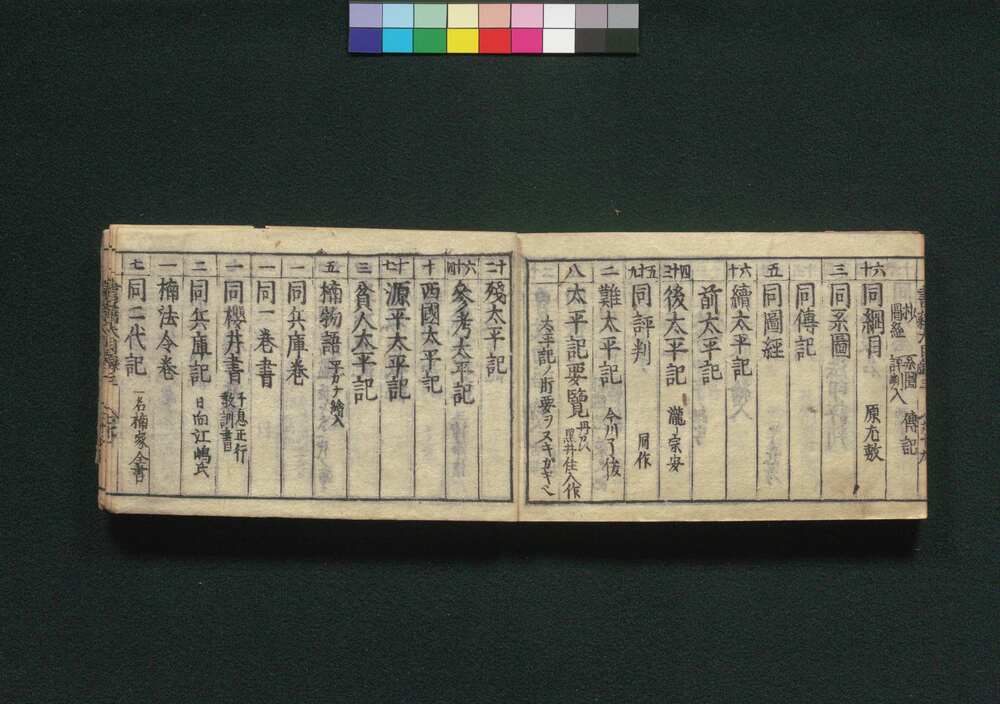 抄 系圖 傳記
圖經 評判入
六十 同綱目 原友數
三 同系圖
同傳記
五 同圖經
六十 續太平記
前太平記
四十三 後太平記 瀧宗安
五十九 同評判 同作
二 難太平記 今川了俊
八 太平記要覽 丹波ノ黑井住人作
太平記ノ肝要ヲ
十二 殘太平記
六十四 參考太平記
十 西國太平記
十七 源平太平記
三 貧人太平記
五 楠物語 平カナ繪入
一 同兵庫卷
一 同一卷書
一 同櫻井書 子息正行教訓書
二 同兵庫記 日向江嶋氏
一 楠法令卷
七 同二代記 一名楠家全書